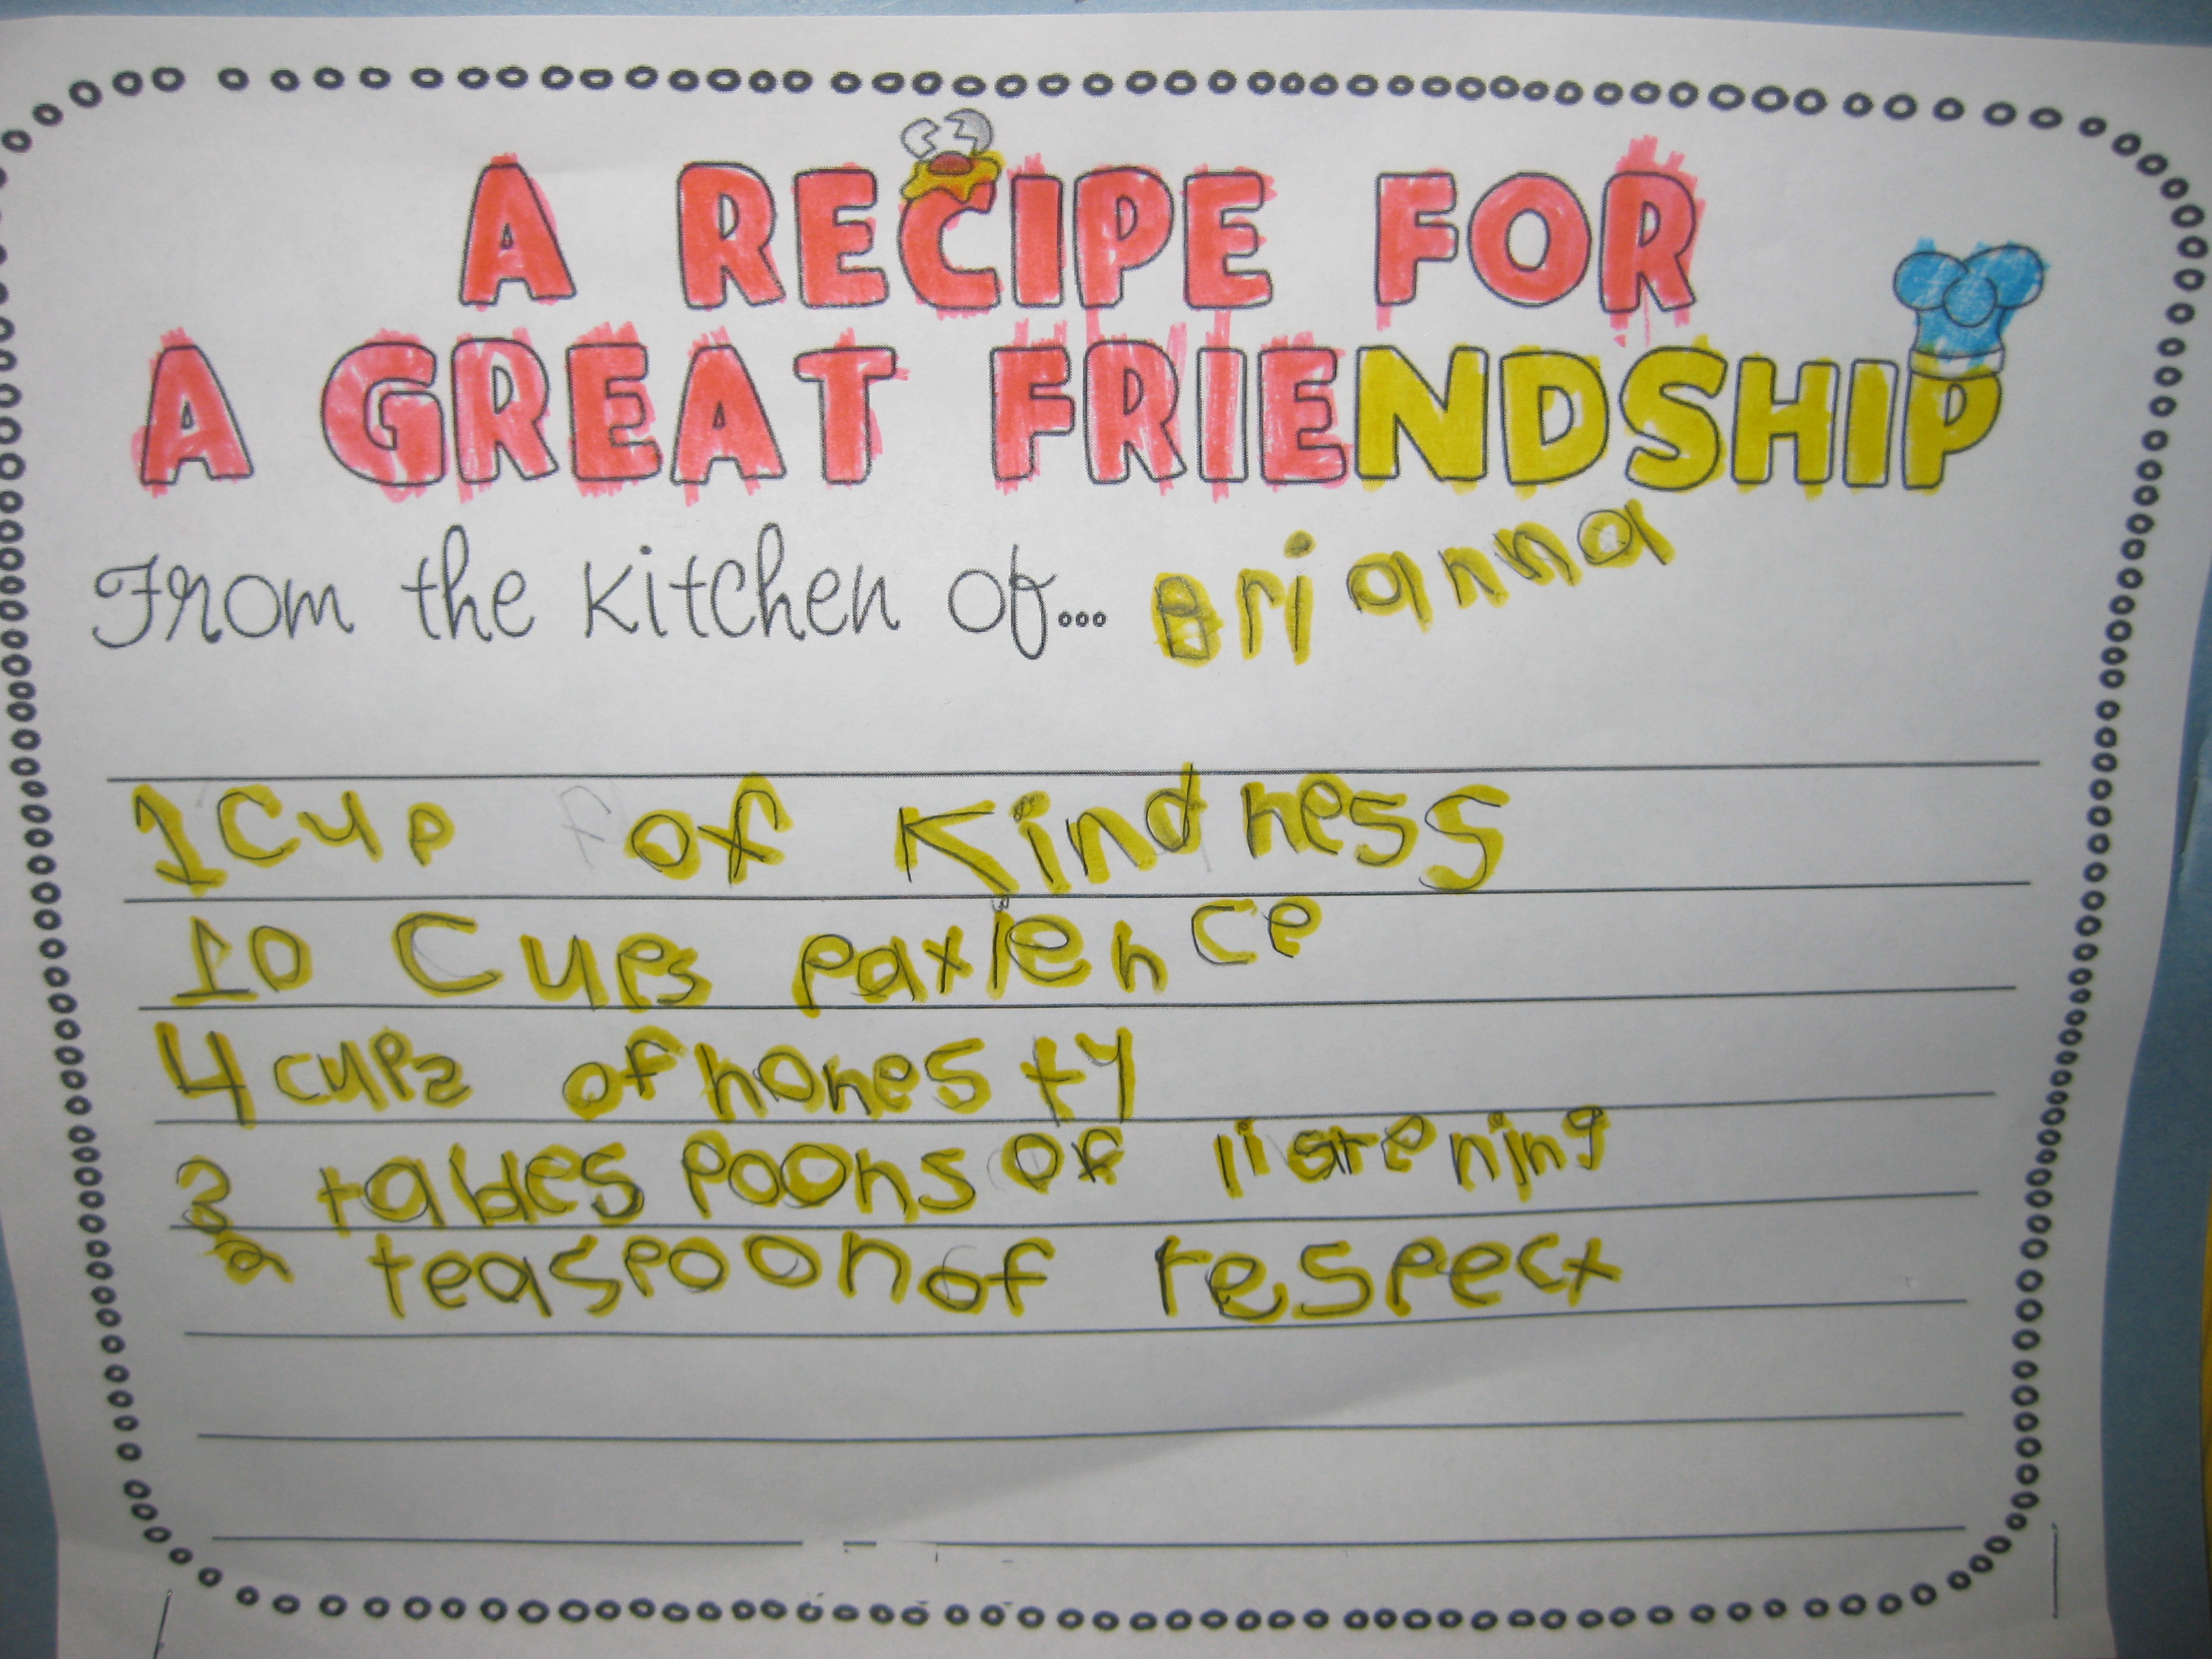 A RECIPE FOR
A GREAT FRIENDSHIP
From the kitchen of... Brianna
1 Cup of Kindness
10 Cups patience
4 cups of honesty
3 tablespoons of listening
2 teaspoon of respect